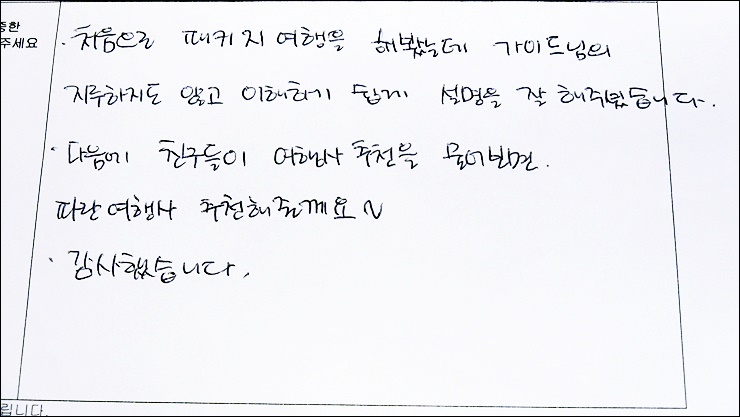 중한
주세요
· 처음으로 패키지여행을 해봤는데 가이드님의
지루하지도 않고 이해하기 쉽게 설명을 잘 해주셨습니다.
· 다음에 친구들이 여행사 추천을 물어보면.
파란여행사 추천해줄께요~
· 감사했습니다.
립니다.